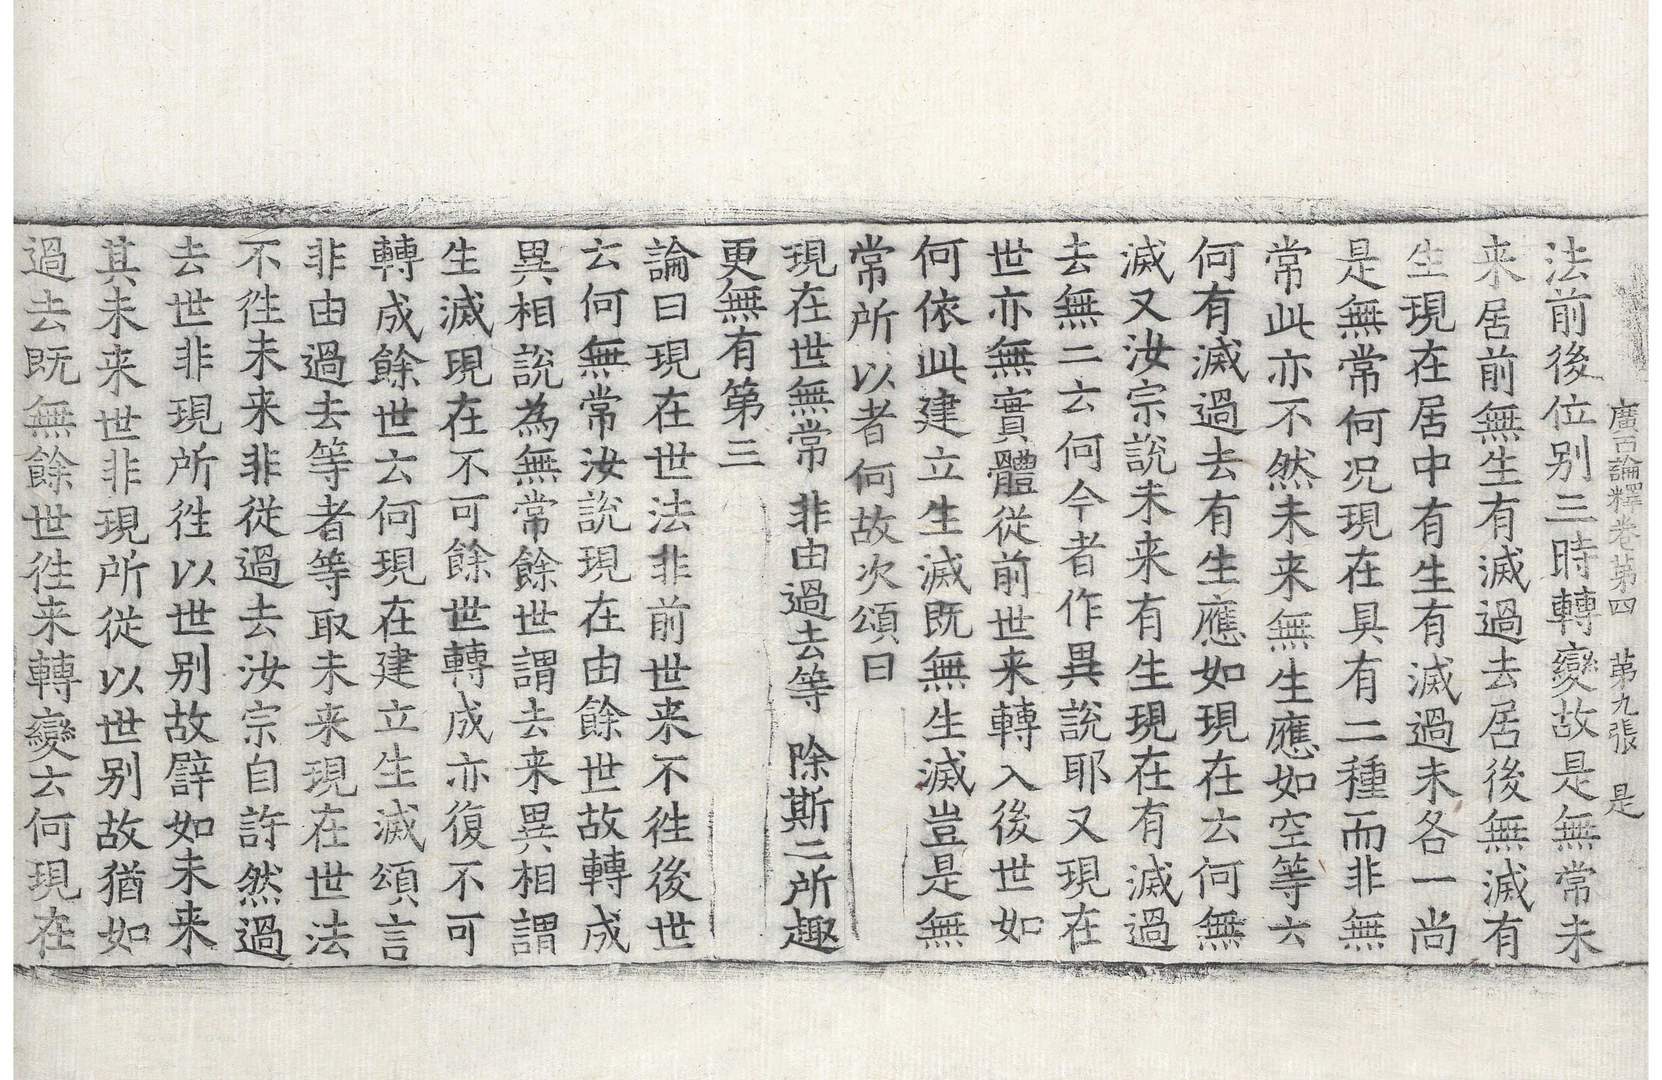 廣百論釋卷第四　第九張　是
法前後位別三時轉變故是無常未
来居前無生有滅過去居後無滅有
生現在居中有生有滅過未各一尚
是無常何况現在具有二種而非無
常此亦不然未来無生應如空等云
何有滅過去有生應如現在云何無
滅又汝宗說未来有生現在有滅過
去無二云何今者作異說耶又現在
世亦無實體從前世来轉入後世如
何依此建立生滅既無生滅豈是無
常所以者何故次頌曰
現在世無常　非由過去等　除斯二所趣
更無有第三
論曰現在世法非前世来不徃後世
云何無常汝說現在由餘世故轉成
異相說為無常餘世謂去来異相謂
生滅現在不可餘世轉成亦復不可
轉成餘世云何現在建立生滅頌言
非由過去等者等取未来現在世法
不徃未来非從過去汝宗自許然過
去世非現所徃以世別故譬如未来
其未来世非現所從以世別故猶如
過去既無餘世徃来轉變云何現在